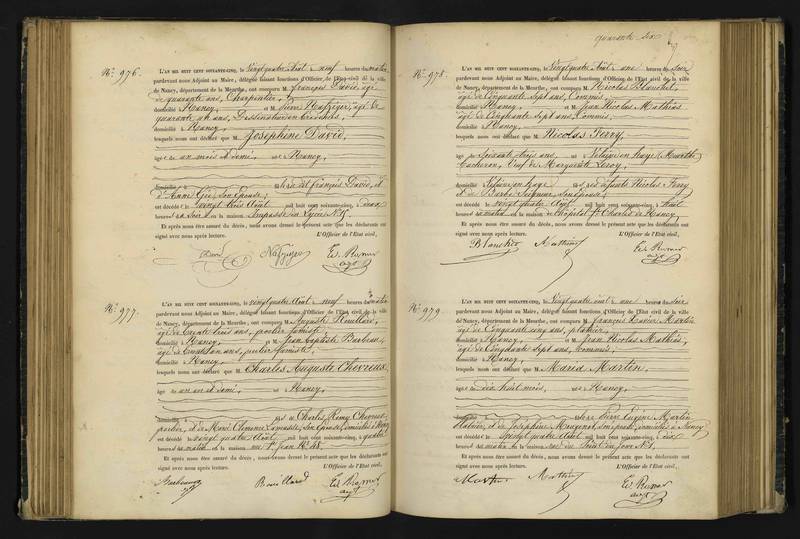 quarante six
N.º 976.
L'AN MIL HUIT CENT SOIXANTE-CINQ, le Vingtquatre Août neuf heures du matin
pardevant nous Adjoint au Maire, délégué faisant fonctions d'Officier de l'Etat civil de la ville
de Nancy, département de la Meurthe, ont comparu M. François David, âgé
de quarante ans, Charpentier,
domicilié à Nancy, et M. Pierre
quarante ans, Dessinateur en broderies,
domicilié à Nancy,
lesquels nous ont déclaré que M. Joséphine David,
âgée de un mois et demi, née à Nancy,
domicilié à fille de dit François David, et
d'Anne son Epouse,
est décédée le vingt trois Août mil huit cent soixante-cinq, à deux
heures du soir en la maison Impasse du Lycée N.º
Et après nous être assuré du décès, nous avons dressé le présent acte que les déclarants ont
signé avec nous après lecture. L'Officier de l'Etat civil,
David
N.º 977.
L'AN MIL HUIT CENT SOIXANTE-CINQ, le vingtquatre Août neuf heures du matin
pardevant nous Adjoint au Maire, délégué faisant fonctions d'Officier de l'Etat civil de la ville
de Nancy, département de la Meurthe, ont comparu M. Auguste Rouillard,
âgé de trente trois ans, poëlier fumiste,
domicilié à Nancy, et M. Jean Baptiste Barbeau,
âgé de ans, poëlier fumiste,
domicilié à Nancy,
lesquels nous ont déclaré que M. Charles Auguste Chevreux
âgé de un an et demi, né à Nancy,
domicilié à fils de Charles Rémy Chevreux
poëlier, et de Marie Clémence son Epouse, domiciliés à Nancy
est décédé le vingt quatre Août mil huit cent soixante-cinq, à quatre
heures du matin en la maison rue St. Jean N.º 48.
Et après nous être assuré du décès, nous avons dressé le présent acte que les déclarants ont
signé avec nous après lecture. L'Officier de l'Etat civil,
Rouillard
N.º 978.
L'AN MIL HUIT CENT SOIXANTE-CINQ, le Vingtquatre Août une heure du soir
pardevant nous Adjoint au Maire, délégué faisant fonctions d'Officier de l'Etat civil de la ville
de Nancy, département de la Meurthe, ont comparu M. Nicolas Blanchet,
âgé de Cinquante sept ans, Commis,
domicilié à Nancy, et M. Jean Nicolas Mathieu
âgé de Cinquante sept ans, Commis,
domicilié à Nancy,
lesquels nous ont déclaré que M. Nicolas Ferry
âgé de Soixante trois ans, né à en haye (Meurthe)
Veuf de Marguerite Leroy,
domicilié à en haye fils des défunts Nicolas Ferry
et de Barbe son Epouse,
est décédé le vingt quatre Août mil huit cent soixante-cinq, à huit
heures du matin en la maison de l'hôpital St. Charles de Nancy,
Et après nous être assuré du décès, nous avons dressé le présent acte que les déclarants ont
signé avec nous après lecture. L'Officier de l'Etat civil,
Blanchet Mathieu
N.º 979.
L'AN MIL HUIT CENT SOIXANTE-CINQ, le Vingtquatre août une heure du soir
pardevant nous Adjoint au Maire, délégué faisant fonctions d'Officier de l'Etat civil de la ville
de Nancy, département de la Meurthe, ont comparu M. François Xavier Martin
âgé de Cinquante cinq ans, plâtrier,
domicilié à Nancy, et M. Jean Nicolas Mathieu,
âgé de Cinquante sept ans, Commis,
domicilié à Nancy,
lesquels nous ont déclaré que M. Maria Martin,
âgée de Dix huit mois, née à Nancy,
domicilié à fille de Pierre Eugène Martin
et de Joséphine son épouse, domiciliés à Nancy
est décédée le vingt quatre Août mil huit cent soixante-cinq, à dix
heures du matin en la maison rue du N.º 1.
Et après nous être assuré du décès, nous avons dressé le présent acte que les déclarants ont
signé avec nous après lecture. L'Officier de l'Etat civil,
Martin Mathieu